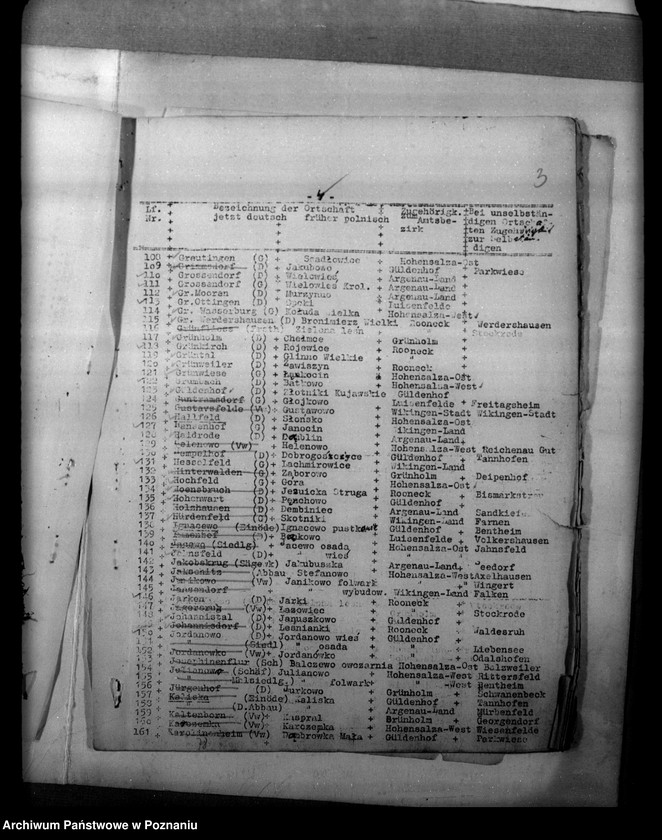 3
- 4 -
Lf. Bezeichnung der Ortschaft Zugehörigk. Bei unselbstän-
Nr. jetzt deutsch früher polnisch zum Amtsbe- digen Ortscha
zirk ten Zugehörig
zur selbstän
digen
100 Greutingen (G) Szadłowice + Hohensalza-Ost
109 Grimmsdorf (D) + Jakubowo + Güldenhof + Parkwiese
110 Grossendorf (D) + Wielowieś + Argenau-Land
111 Grossendorf (G) + Wielowieś Krol. + Argenau-Land
112 Gr.Mooren (D) + Murzynno + Argenau-Land
113 Gr.Ottingen (D) + Opoki + Luisenfelde
114 Gr. Wasserburg (G) + Kołuda Wielka + Hohensalza-West
115 Gr. Werdershausen (D) Bronimierz Wielki Rooneck + Werdershausen
116 Grünfliess (Fretb) Zielona + Stockrode
117 Grünholm (D) + Chełmce + Grünholm
118 Grünkirch (G) + Rojewice + Rooneck
119 Grüntal (D) + Glinno Wielkie +
120 Grünweiler (D) + Zawiszyn + Rooneck
121 Grünwiese (G) + Łąkocin + Hohensalza-Ost
122 Grumbach (D) + Batkowo + Hohensalza-West
123 Güldenhof (D) + Płotniki Kujawskie Güldenhof
124 Guntramsdorf (G) + Głojkowo + Luisenfelde + Freitagsheim
125 Gustavsfelde (Vw) + Gustawowo + Wikingen-Stadt Wikingen-Stadt
126 Hallfeld (D) + Słońsko + Hohensalza-Ost
127 Hansenhof (G) + Janocin + Wikingen-Land
128 Heidrode (D) + + Argenau-Land
129 Helenowo (Vw) + Helenowo + Hohensalza-West Reichenau Gut
130 Hempelhof (D) + Dobrogoszczyce + Güldenhof + Tannhofen
131 Hesselfeld (G) + Lachmirowice + Wikingen-Land
132 Hinterwalden (G) + Zaborowo + Grünholm + Deipenhof
133 Hochfeld (G) + Gora + Hohensalza-Ost
134 Hoensbruch (D) + Jezuicka Struga + Rooneck + Bismarkstrae
135 Hohenwart (D) + Penchowo + Güldenhof
136 Holmhausen (D) + Dembiniec + Argenau-Land Sandkief
137 Hürdenfeld (G) + Skotniki + Wikingen-Land + Farnen
138 Ignacewo (Einöde) Ignacewo pustkowi + Güldenhof + Bentheim
139 + Luisenfelde + Volkershausen
140 (Siedlg) + Jacewo osada + Hohensalza-Ost Jahnsfeld
141 Jahnsfeld (D) + " wieś +
142 Jakobskrug (Sägewk) Jakubuszka + Argenau-Land + Seedorf
143 Jaksonitz (Abbau Stefanowo + Hohensalza-West Axelhausen
144 Janikowo (Vw) Janikowo folwark + " + Wingert
145 Janssendorf " wybudow. Wikingen-Land + Falken
146 Jarken (D) + Jarki + Rooneck +
147 Jägersruh (Vw) + Łasowiec + + Stockrode
148 Johannistal (D) + Januszkowo + Güldenhof
149 Johannisdorf (D) + Leśnianki + Rooneck + Waldesruh
150 Jordanowo (D) + Jordanowo wieś + Güldenhof +
151 " (Siedl) " osada + " + Liebensee
152 Jordanowko (Vw) + Jordanówko + " + Odalshofen
153 Jaeschinenflur (Sch) Balczewo owczarnia Hohensalza-Ost Balzweiler
154 Julianowo (Schäf) Julianowo + Hohensalza-West Rittersfeld
155 " (Kleinsiedlg) " folwark + " -West Bentheim
156 Jürgenhof (D) + Murkowo + Grünholm + Schwanenbeck
157 Kaliska (Einöde) Kaliska + Güldenhof + Tannhofen
158 " (D.Abbau) " + Argenau-Land + Hürbenfeld
159 Kaltenborn (Vw) + + Grünholm + Georgendorf
160 Karczemka (Vw) + Karczemka + Hohensalza-West Wiesenfelde
161 Karolinenheim (Vw) Dąbrowka Mała + Güldenhof + Parkwiese
Archiwum Państwowe w Poznaniu